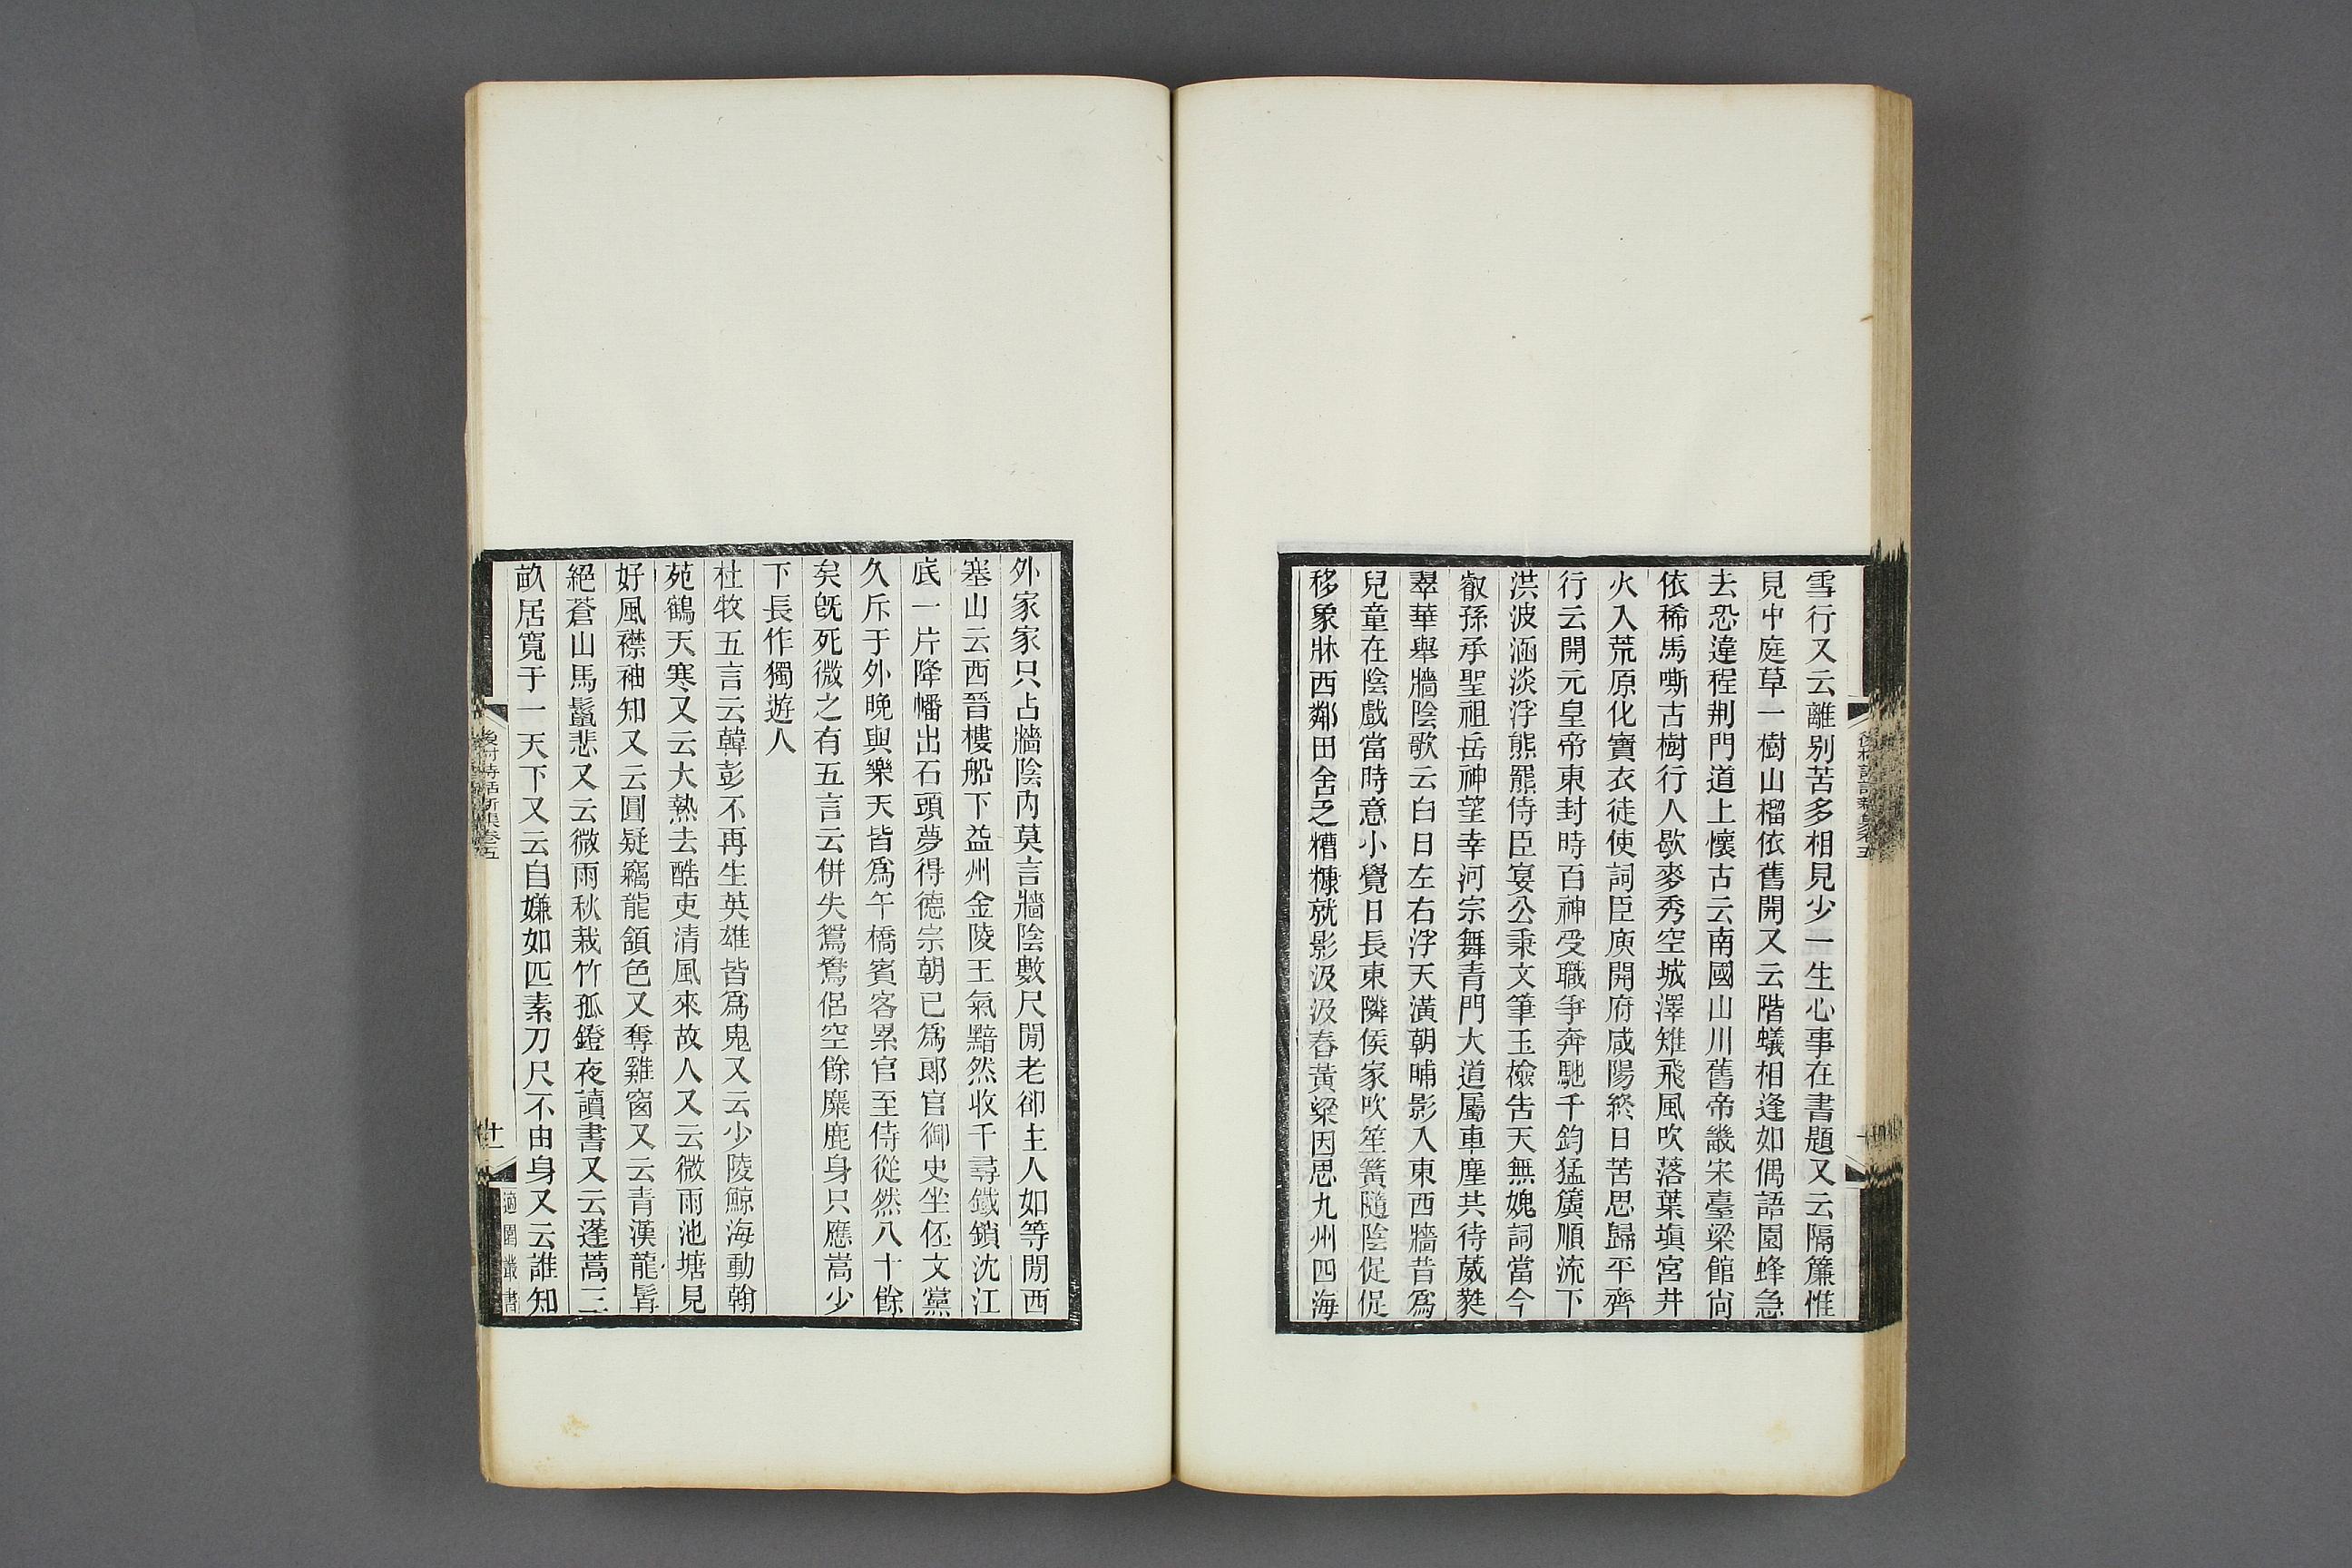 雪行又云離别苦多相見少一生心事在書題又云隔簾惟
見中庭草一樹山榴依舊開又云階蟻相逢如偶語園蜂急
去恐違程荆門道上懷古云南國山川舊帝畿宋臺梁館尙
依稀馬嘶古樹行人歇麥秀空城澤雉飛風吹落葉塡宮井
火入荒原化寶衣徒使詞臣庾開府咸陽終日苦思歸平齊
行云開元皇帝東封時百神受職爭奔馳千鈞猛簴順流下
洪波涵淡浮熊羆侍臣宴公秉文筆玉檢吿天無媿詞當今
叡孫承聖祖岳神望幸河宗舞青門大道屬車塵共待葳蕤
翠華舉牆陰歌云白日左右浮天潢朝晡影入東西牆昔爲
兒童在陰戲當時意小覺日長東隣侯家吹笙簧隨陰促促
移象牀西鄰田舍乏糟糠就影汲汲舂黃粱因思九州四海
外家家只占牆陰內莫言牆陰數尺閒老卻主人如等閒西
塞山云西晉樓船下益州金陵王氣黯然收千尋鐵鎖沈江
底一片降幡出石頭夢得德宗朝已爲郎官御史坐伾文黨
久斥于外晚與樂天皆爲午橋賓客累官至侍從然八十餘
矣旣死微之有五言云併失鴛鴦侶空餘麋鹿身只應嵩少
下長作獨遊人
杜牧五言云韓彭不再生英雄皆爲鬼又云少陵鯨海動翰
苑鶴天寒又云大熱去酷吏清風來故人又云微雨池塘見
好風襟袖知又云圓疑竊龍頷色又奪雞窗又云青漢龍髯
絕蒼山馬鬣悲又云微雨秋栽竹孤鐙夜讀書又云蓬蒿三
畝居寬于一天下又云自嫌如匹素刀尺不由身又云誰知
後村詩話新集卷五
廿一
適園叢書